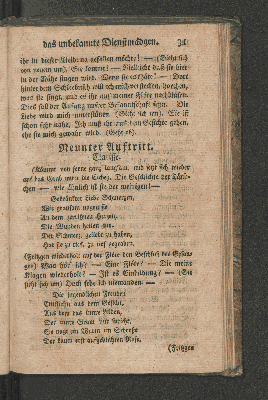 das unbekannte Dienstmädgen. 31
ihr in dieser Kleidung gefallen möchte! — (Sieht sich
von neuem um). Sie kommt! — Vielleicht daß sie hier
in der Kühle singen wird. Wenn sie es thäte! — Dort
hinter dem Schleebusch will ich mich verstecken, hören,
was sie singt, und es ihr auf meiner Flöte nachblasen.
Dies soll der Anfang unsrer Bekanntschaft seyn. Die
Liebe wird mich unterstützen. (Sieht sich um). Sie ist
schon sehr nahe. Ich muß ihr aus dem Gesichte gehen,
ehe sie mich gewahr wird. (Geht ab).
Neunter Auftritt.
Clarisse.
(Kömmt von ferne ganz langsam, und setzt sich hierher
auf das Gras unter die Linde). Die Geschichte der Zärtlichen
— wie ähnlich ist sie der meinigen! —
Gekränkter Liebe Schmerzen,
Wie grausam nagen sie
An dem zerrißnen Herzen;
Die Wunden heilen nie.
Der Schmerz, geliebt zu haben,
Hat sie zu tief, zu tief gegraben.
(Fritzgen wiederholt auf der Flöte den
ges) Was hör' ich? — Eine Flöte? — Die meine
Klagen wiederholt? — Ist es Einbildung? — (Sie
sieht sich um) Doch sehe ich niemanden. —
Die jugendlichen Freuden
Entfliehn aus dem Gesicht,
Aus dem
Der
So nagt ein Wurm im Schooße
Der kaum erst aufgeblühten Rose.
(Fritzgen